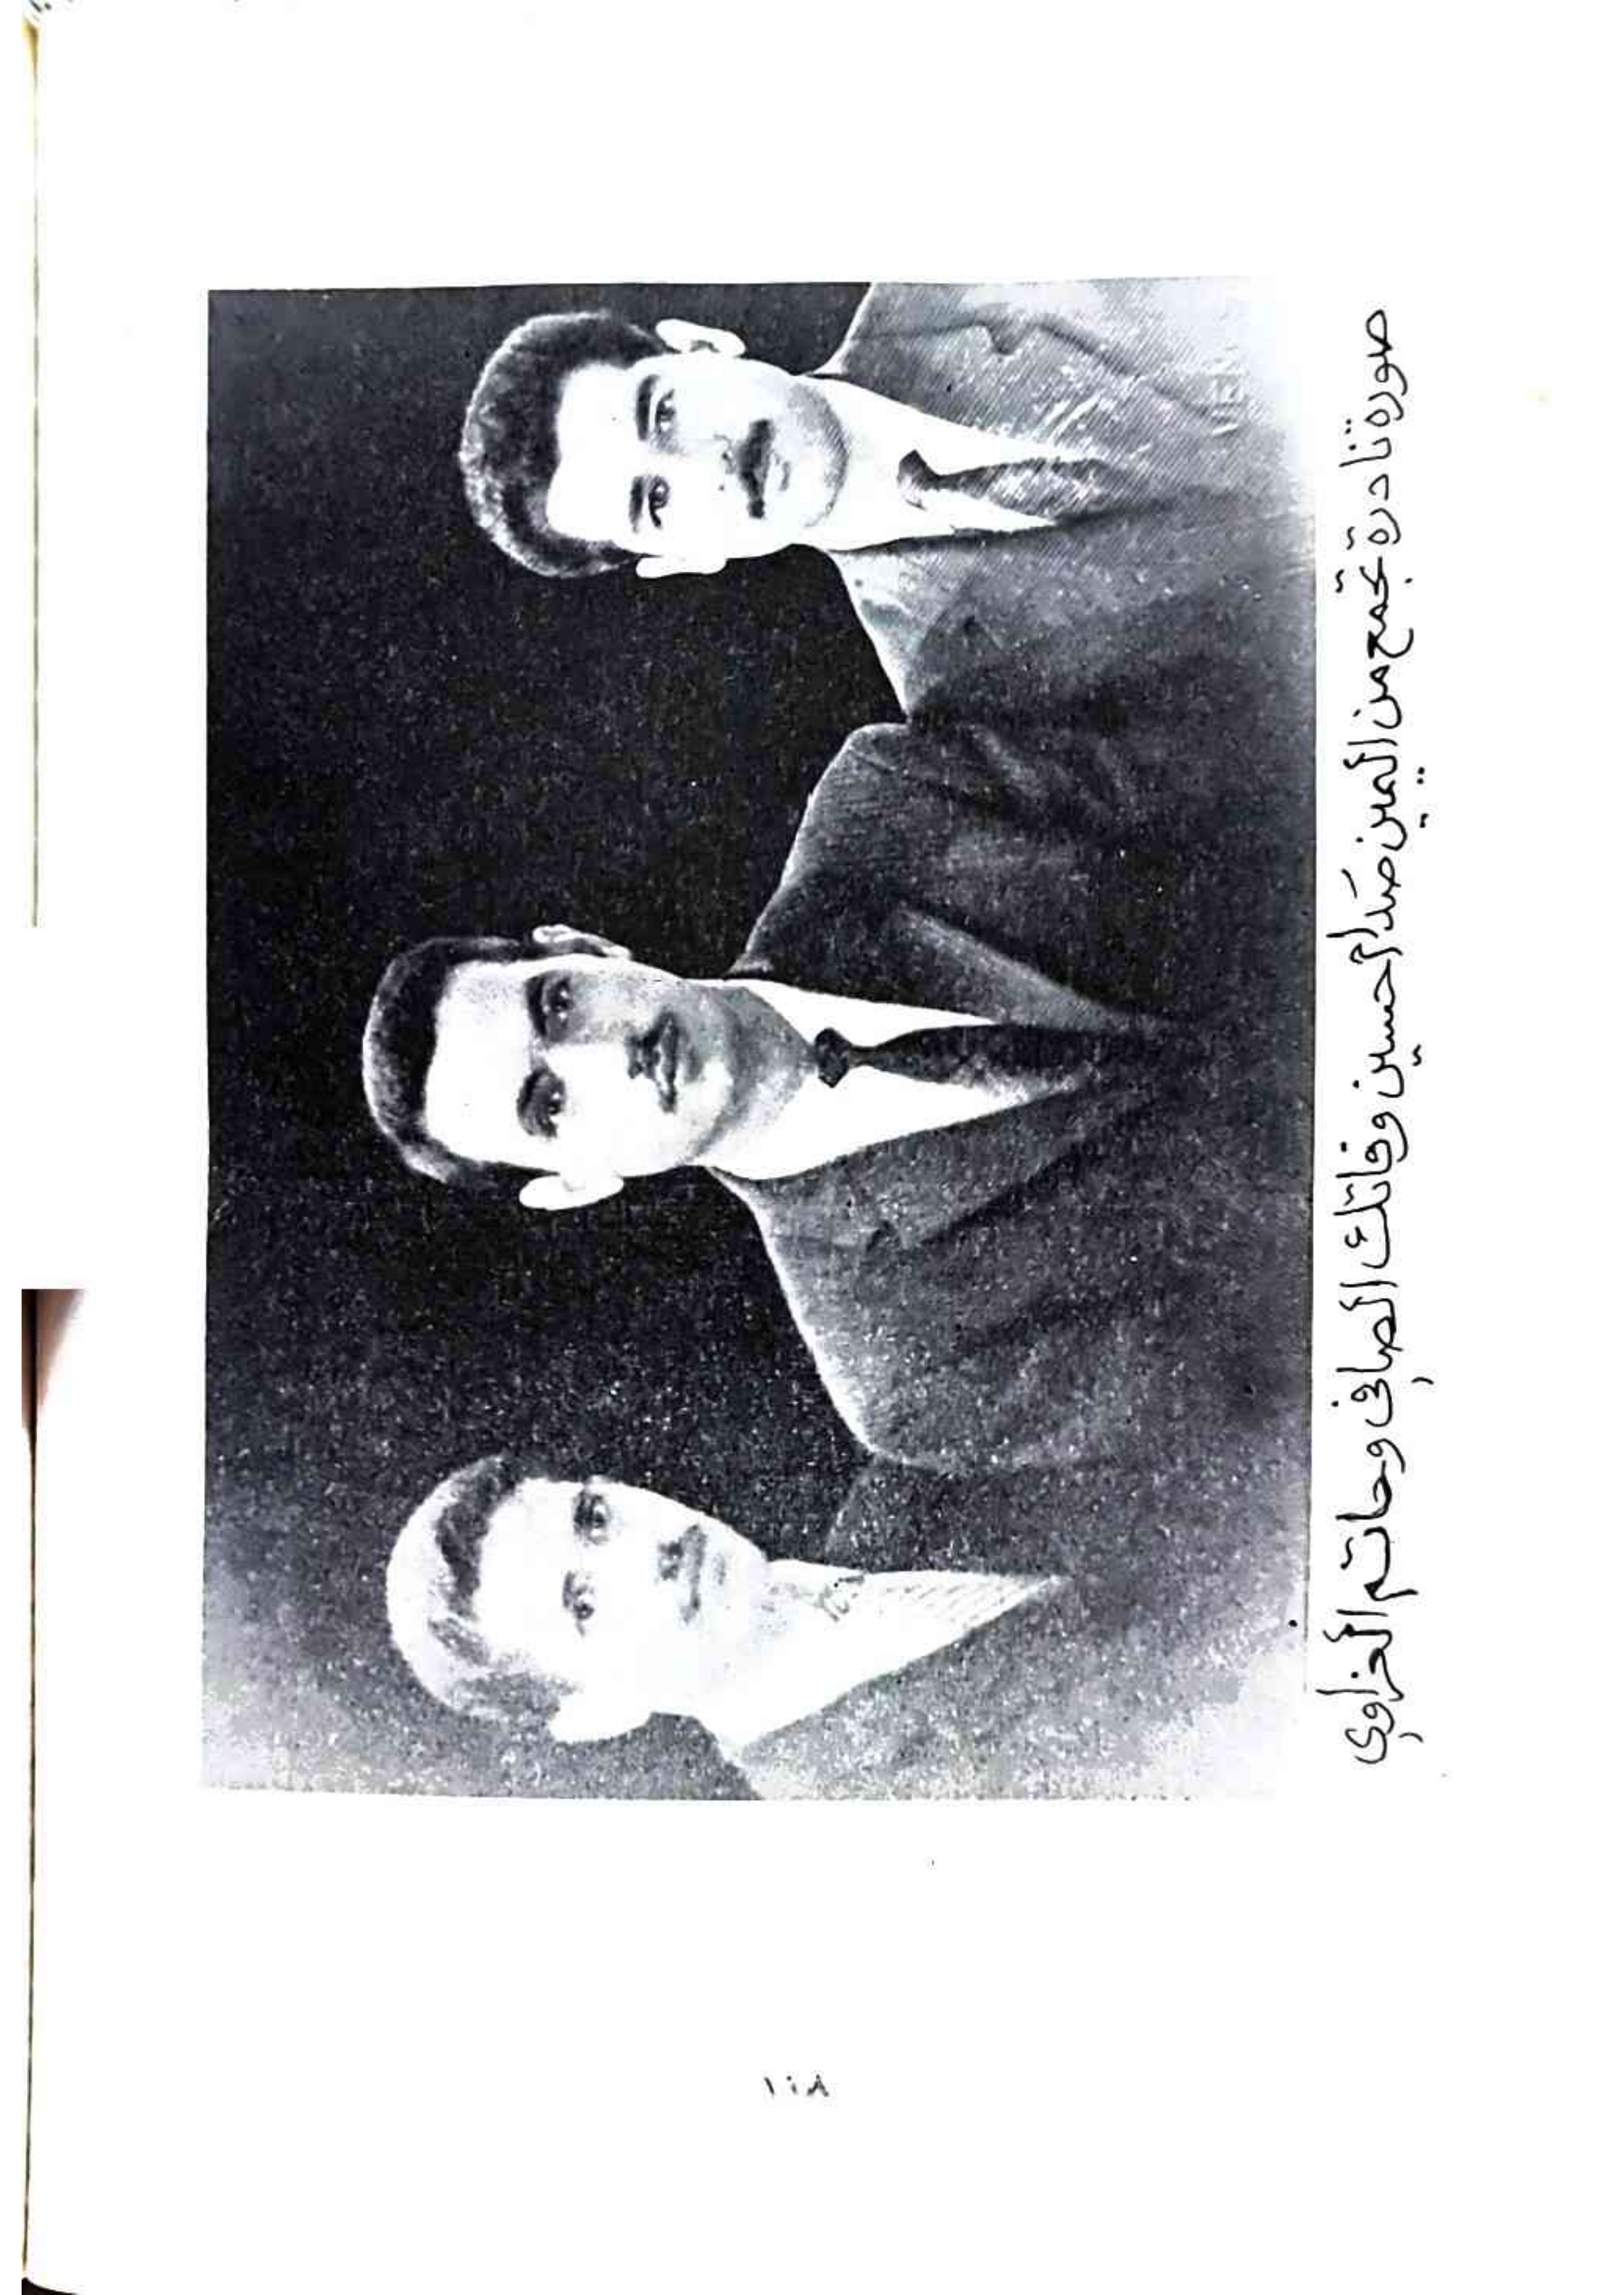 صورة نادرة تجمع من اليمين صدام حسين وفاتك الصافي وحاتم العزاوي
١٠٨